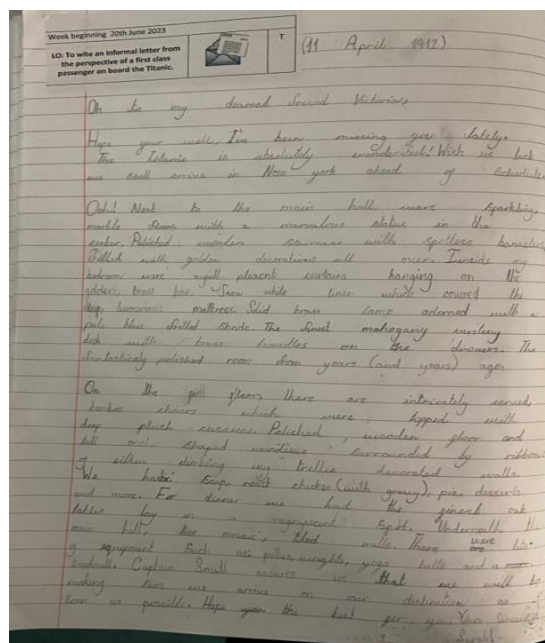 Week beginning 20th June 2023
LO: To wite an informal letter from
the perspective of a first class
passenger on board the Titanic.
T
(11 April 1912)
Oh to my dearest friend Victoria,
Hope your well, I've been missing you lately.
The Titanic is absolutely wonderful! Wish us luck
we shall arrive in New york ahead of schedule
Ooh! Next to the main hall were sparkling,
marble floors with a marvalous statue in the
center. Polished wooden staircase with spotless
Filled with golden decorations all over. Inside my
bedroom were pleasnt curtains hanging on the
golden, brass bar. Snow white linen which covered the
deep, mattress. Solid brass lamp adorned with a
pale blue frilled shade. The finest mahogany writing
desk with brass handles on the drawers. The
fantasticaly polished room from years (and years) ago.
On the floors there are intricately carved,
chairs which were topped with
deep plush cussions. Polished, wooden floor and
tall arch shaped windows surrounded by ribbons
of silken climbing ivy trellis decorated walls.
We had soup, roast chicken (with gravy), pie, desserts
and more. For dinner we had the finest oak
tables lay in a magnificent spot. Underneath the
main hall, the mosaic, tiled walls. There were lots
of equipment such as: pullies, weights, yoga balls and a
treadmill. Captain Smith assures us that we will be
making sure we arrive on our destination as
soon as possible. Hope the best for you. Your sincerely
Sarah